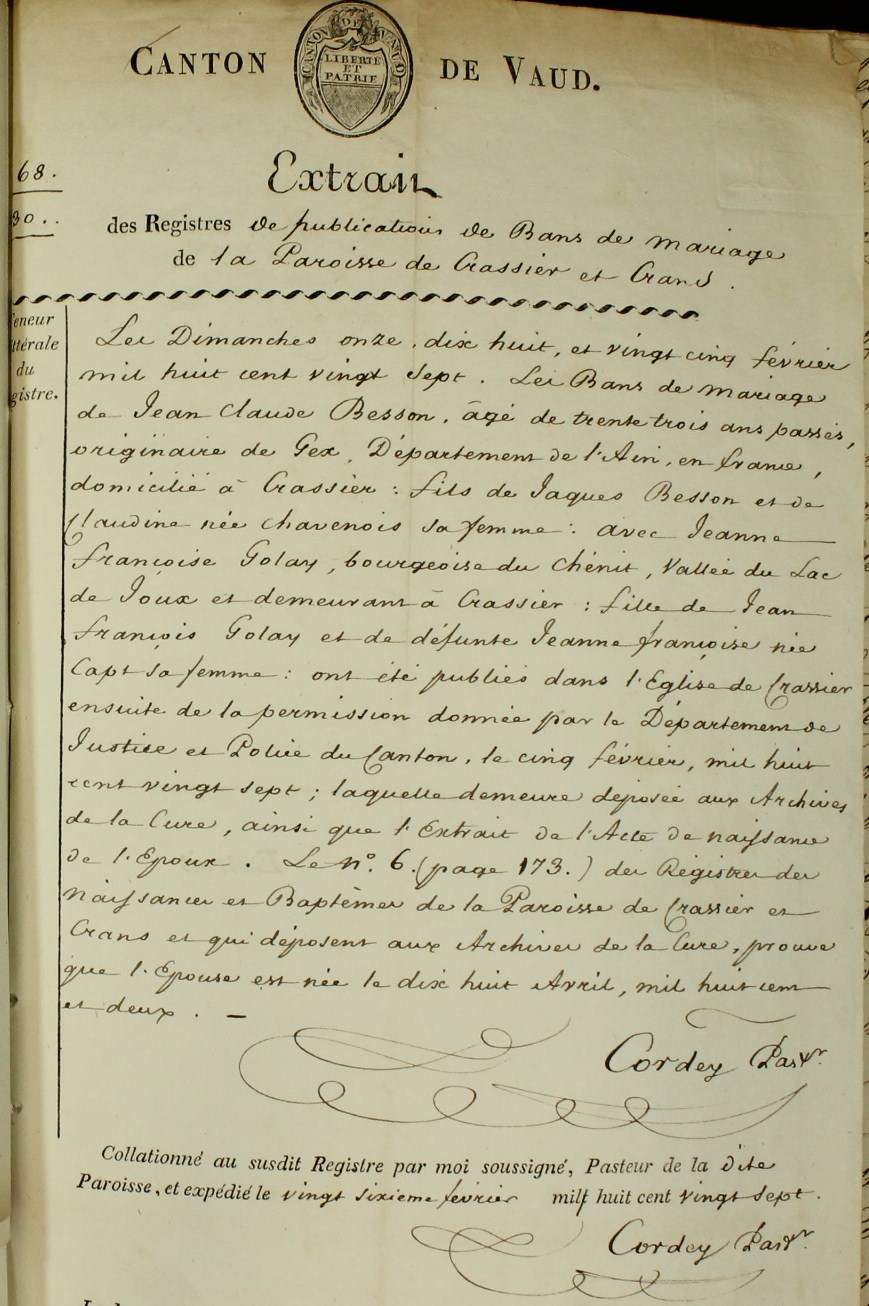 CANTON DE VAUD.
CANTON DE VAUD
LIBERTÉ
ET
PATRIE
Extrait
68.
30..
des Registres de publications de Bans de mariage
de la Paroisse de Crassier et Crans.
teneur
littérale
du
gistre.
Les Dimanches onze, dix huit, et vingt cinq février
mil huit cent vingt sept. Les Bans de mariage
de Jean Claude Besson, âgé de trente trois ans passés,
originaire de Gex, Département de l'Ain, en france,
domicilié à Crassier: fils de Jaques Besson et de
Claudine née Chavenois sa femme: avec Jeanne
françoise Golay, bourgeoise du Chénit, Vallée du Lac
de Joux et demeurant à Crassier: fille de Jean
françois Golay et de défunte Jeanne françoise née
Capt sa femme: ont été publiés dans l'Eglise de Crassier
ensuite de la permission donnée par le Département de
Justice et Police du Canton, le cinq février, mil huit
cent vingt sept; laquelle demeure déposée aux Archives
de la Cure, ainsi que l'Extrait de l'Acte de naissance
de l'Epoux. Le N°. 6. (page 173.) des Régistres des
Naissances et Baptêmes de la Paroisse de Crassier et
Crans et qui déposent aux Archives de la Cure, prouve
que l'Epouse est née le dix huit Avril, mil huit cent
et deux. —
Cordey Past.r
Collationné au susdit Registre par moi soussigné, Pasteur de la dite
Paroisse, et expédié le vingt sixieme février mil huit cent vingt sept.
Cordey Past.r